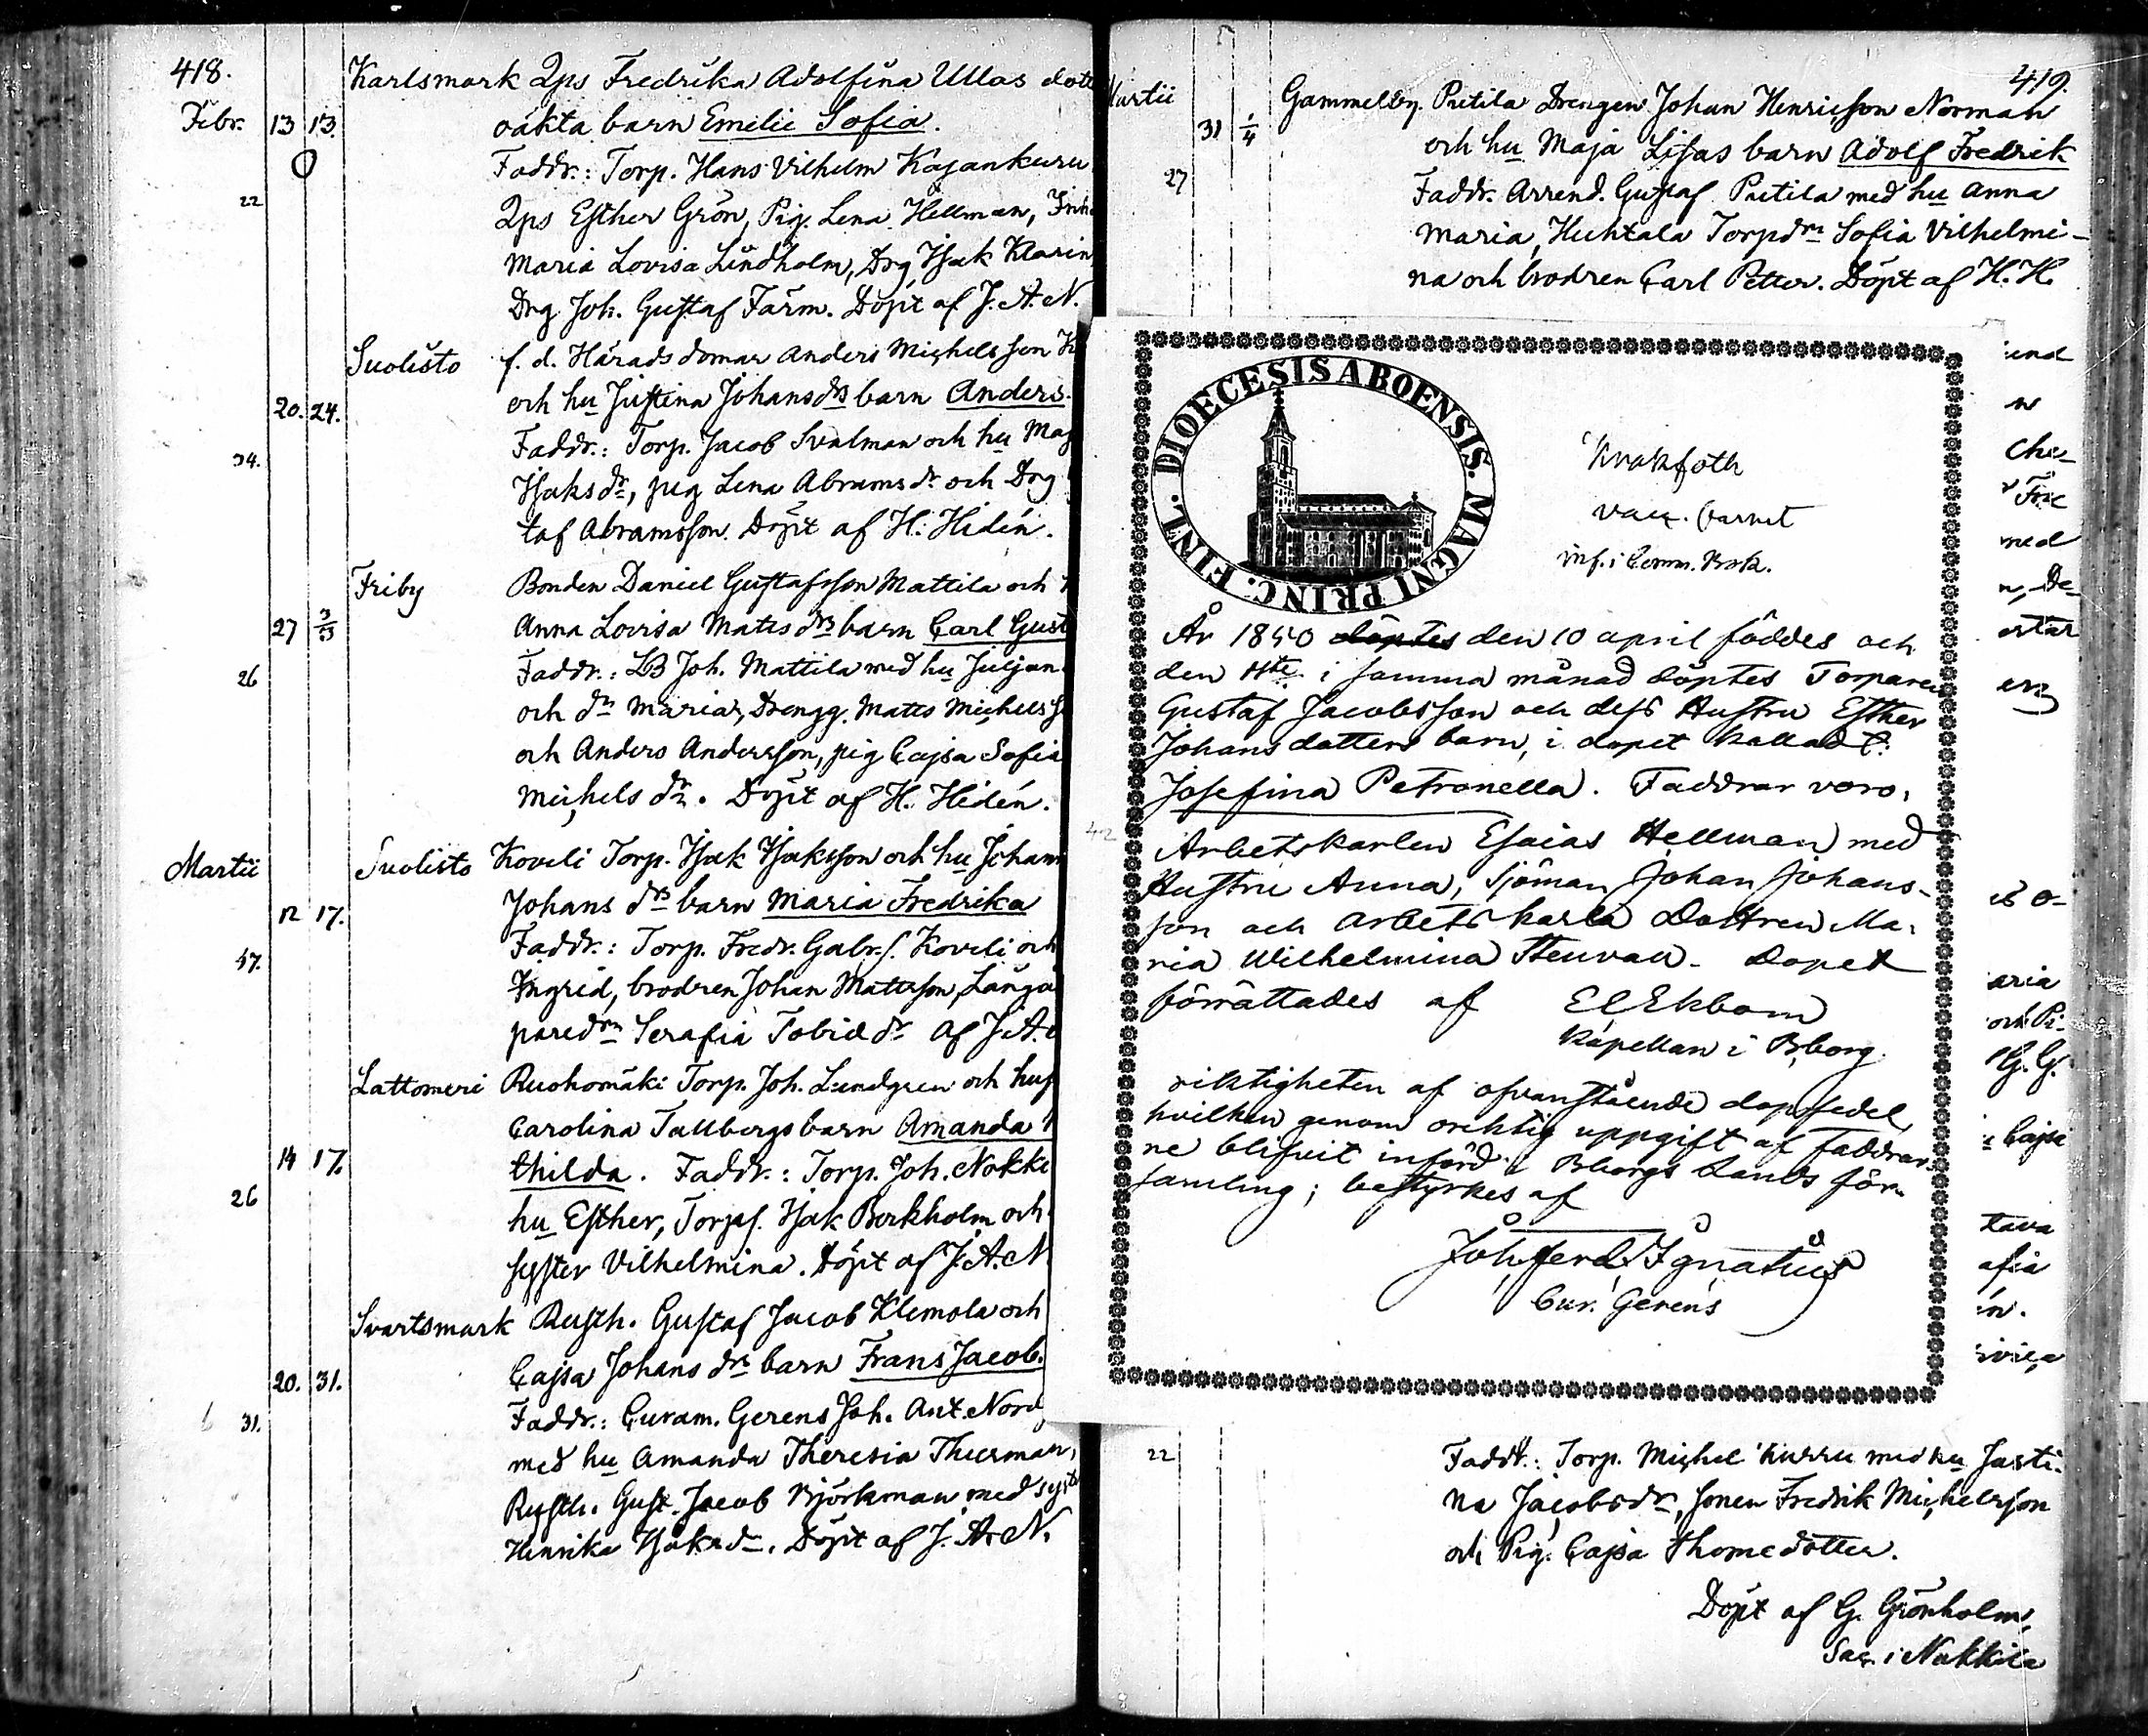 418.
Febr. 13 13. Karlsmark Qps Fredrika Adolfina Ullas dott
oäkta barn Emelie Sofia.
Faddr.: Torp. Hans Vilhelm Kajankuru
22
Qps Esther Grön, Pig. Lena Hellman, Inh
Maria Lovisa Lindholm, Drg Isak Klarin
Drg Joh. Gustaf Färm. Döpt af J. A. N.
Suolisto f. d. Häradsdomar Anders Michelsson K
20. 24. och hu Justina Johansdrs barn Anders.
Faddr.: Torp. Jacob Svalman och hu Mag
34.
Isaksdr, pig Lena Abramsdr och Drg
taf Abramsson. Döpt af H. Hidén.
Friby Bonden Daniel Gustafsson Mattila och
27 3/3 Anna Lovisa Matsdrs barn Carl Gust
Faddr.: LB Joh. Mattila med hu Juljan
26
och dr Maria, Drengg. Matts Michelss
och Anders Andersson, pig Cajsa Sofia
Michelsdr. Döpt af H. Hidén.
Martii Suolisto Koveli Torp. Isak Isaksson och hu Johan
12 17. Johansdrs barn Maria Fredrika
Faddr.: Torp. Fredr. Gabr.s. Koveli och
37.
Ingrid, brodren Johan Mattsson, Långå
paredrn Serafia Tobiedr af J. A.
Lattomeri Ruohomäki Torp. Joh. Lundgren och hus
Carolina Tallbergs barn Amanda
14 17. thilda. Faddr.: Torp. Joh. Nokke
26
hu Esther, Torps. Isak Berkholm och
syster Vilhelmina. Döpt af J. A. N
Svartsmark Rusth. Gustaf Jacob Klemola och
20. 31. Cajsa Johansdrs barn Frans Jacob.
Faddr.: Curam. Gerens Joh. Ant. Nord
31.
med hu Amanda Theresia Thurman,
Rusth. Gust. Jacob Björkman med syst
Henrika Isaksdr. Döpt af J. A. N.
419.
Martii Gammelby. Pietila Drengen Johan Henricsson Norman
31 1/4 och hu Maja Lisas barn Adolf Fredrik
27
Faddr. Arrend. Gustaf Pietila med hu Anna
Maria, Huhtala Torpdrn Sofia Vilhelmi-
na och brodren Carl Petter. Döpt af H. H.
DIOECESIS ABOENSIS. MAGNI PRINC. FINL.
Kråkfoth
vacc. barnet
inf. i Comm. Bok.
År 1840 döptes den 10 april föddes och
den 11te i samma månad döptes Torparen
Gustaf Jacobsson och dess Hustru Esther
Johansdotters barn, i dopet kalladt:
Josefina Petronella. Faddrar voro,
42
Arbetskarlen Esaias Hellman med
Hustru Anna, Sjöman Johan Johans-
son och arbetskarls Dottren Ma-
ria Wilhelmina Stenvall. Dopet
förrättades af El Ekbom
Kapellan i Bborg.
riktigheten af ofvanstående dopsedel,
hvilken genom oriktig uppgift af faddrar-
ne blifvit införd i Bborgs Lands för-
samling; bestyrkes af
Joh Ferd. Ignatius
Cur. Gerens
iend
n
Che-
Fric
med
n, De-
ortar
ers
ch o-
aria
och Pi-
G. G.
Cajsa
tava
afia
in.
22
Faddr.: Torp. Michel Kurru med hu Justi-
na Jacobsdr, sonen Fredrik Michelsson
och Pig. Cajsa Thomedotter.
Döpt af G. Grönholm,
Sac. i Nakkila